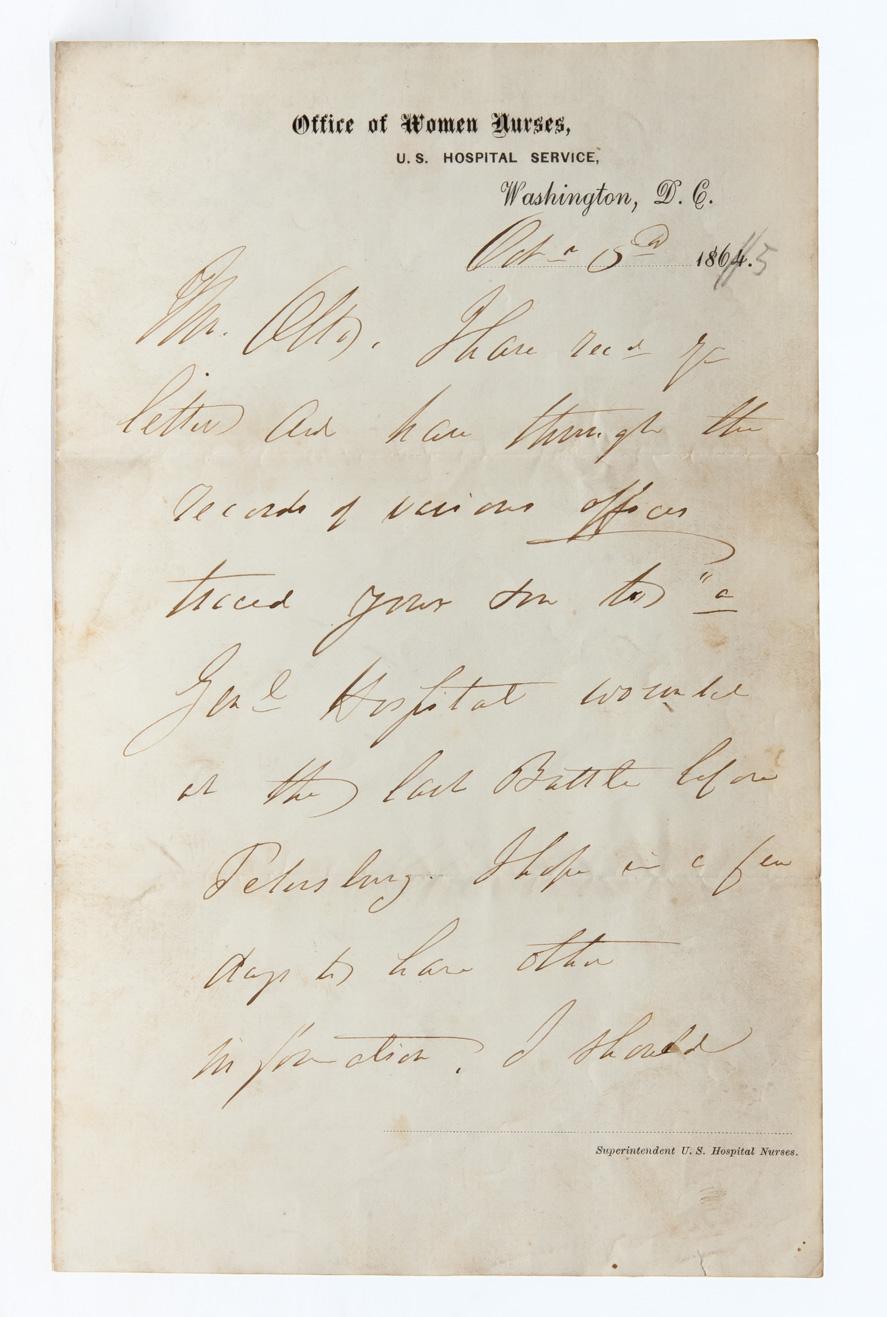 Office of Women Nurses,
U. S. HOSPITAL SERVICE,
Washington, D. C.
Oct 1864. 5
Mr. I have recd yr
letter and have through the
records of various offices
traced your son to "a
Genl Hospital wounded
at the last Battle before
Petersburg. I hope in a few
days to have other
information. I should
Superintendent U. S. Hospital Nurses.